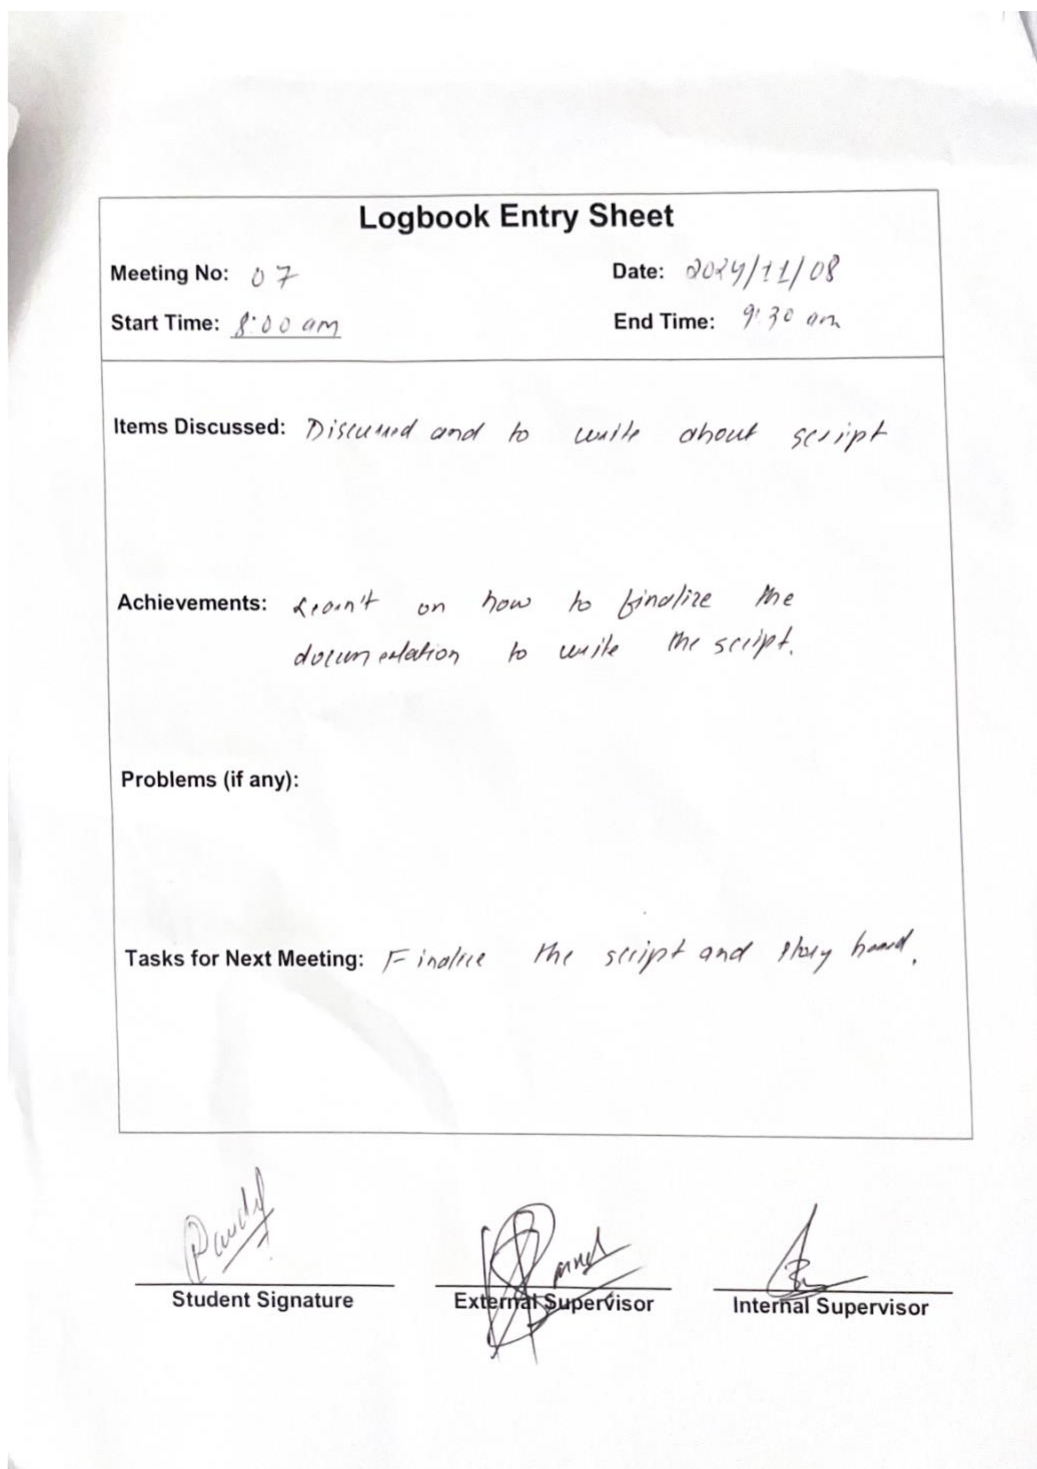 Logbook Entry Sheet
Meeting No: 07
Date: 2024/11/08
Start Time: 8:00 am
End Time: 9:30 am
Items Discussed: Discussed and to write about script
Achievements: Learn't on how to finalize the
documentation to write the script.
Problems (if any):
Tasks for Next Meeting: Finalize the script and story board.
Student Signature
External Supervisor
Internal Supervisor